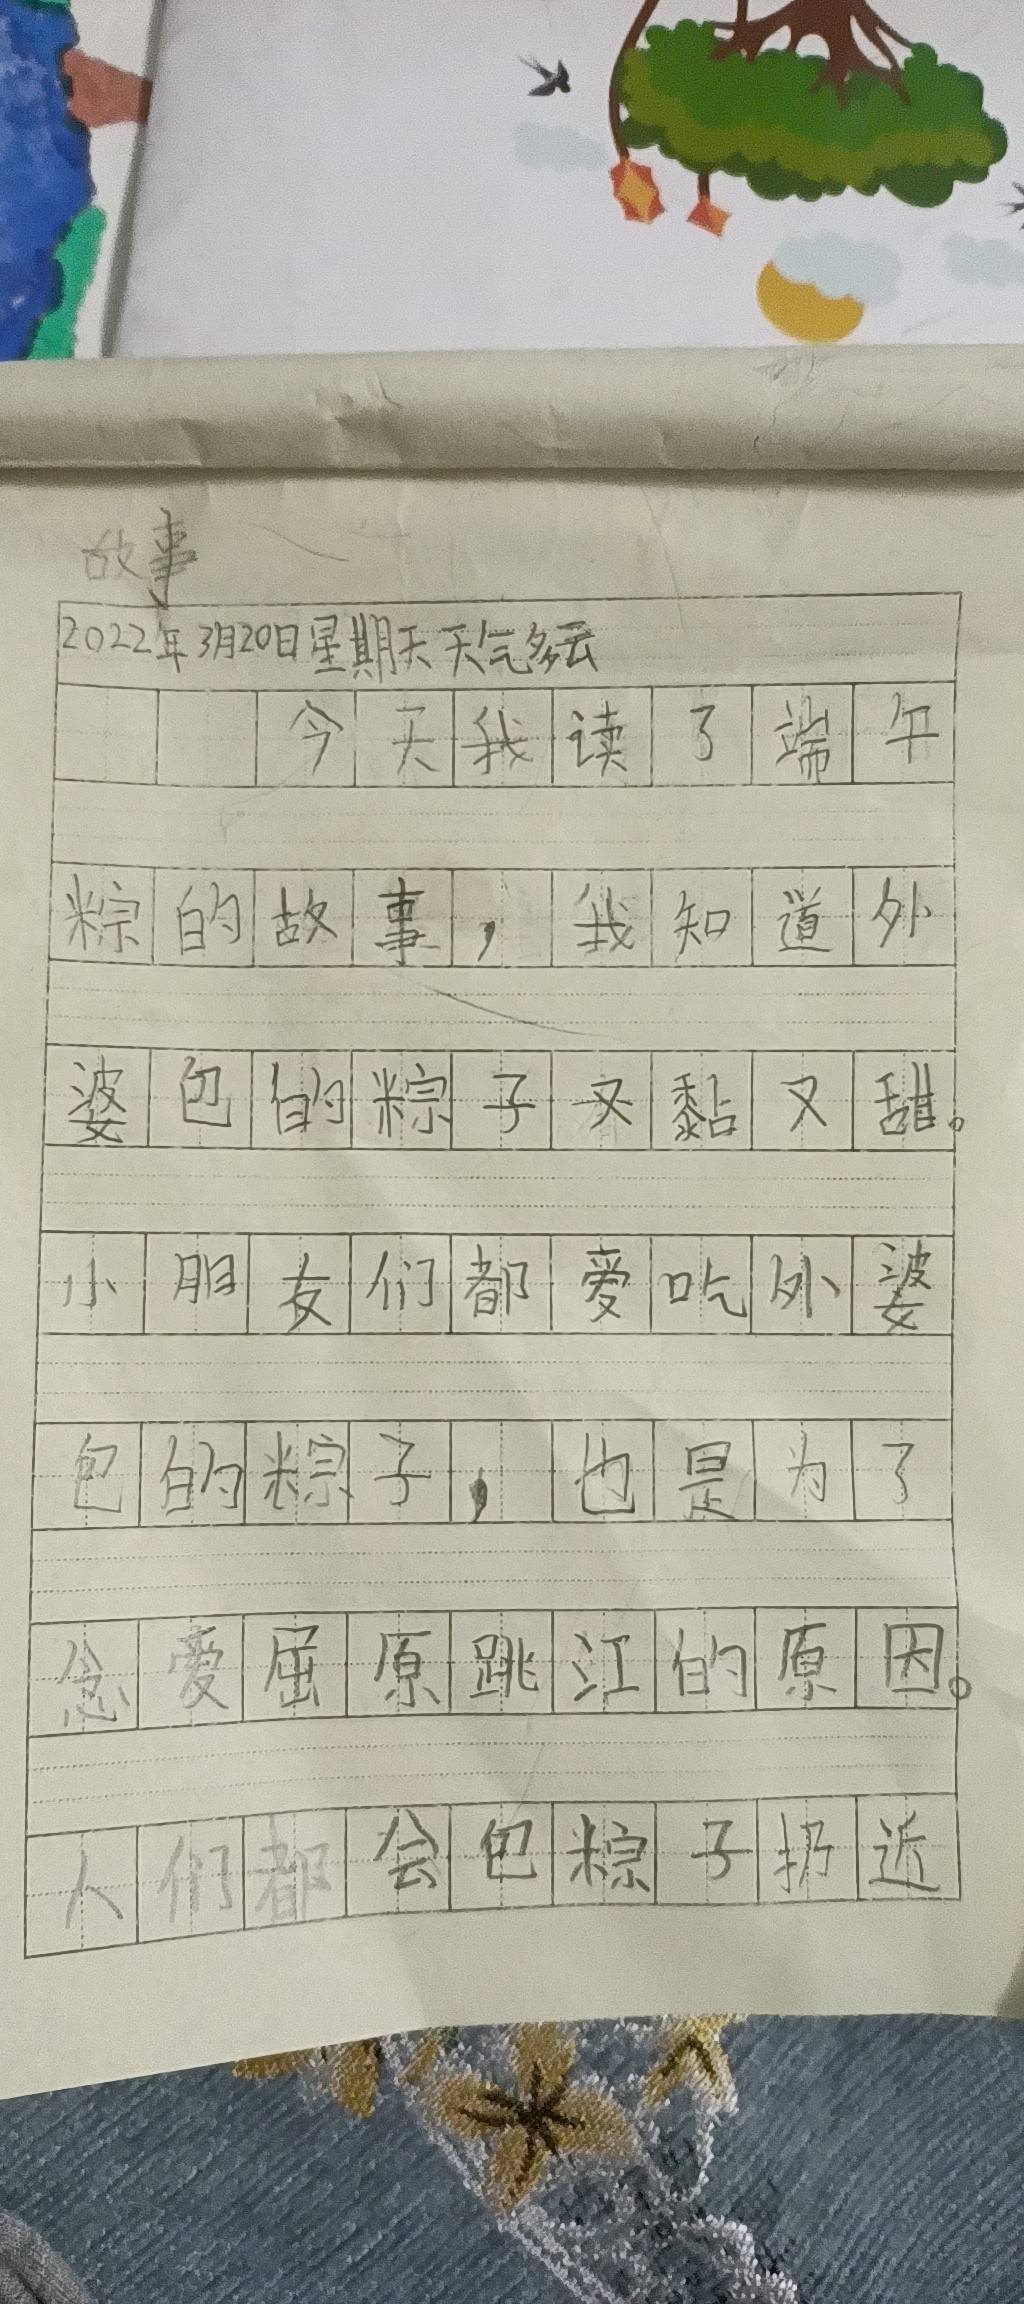 故事
2022年3月20日星期天天气多云
今天我读了端午
粽的故事，我知道外
婆包的粽子又黏又甜。
小朋友们都爱吃外婆
包的粽子，也是为了
念爱屈原跳江的原因。
人们都会包粽子扔近